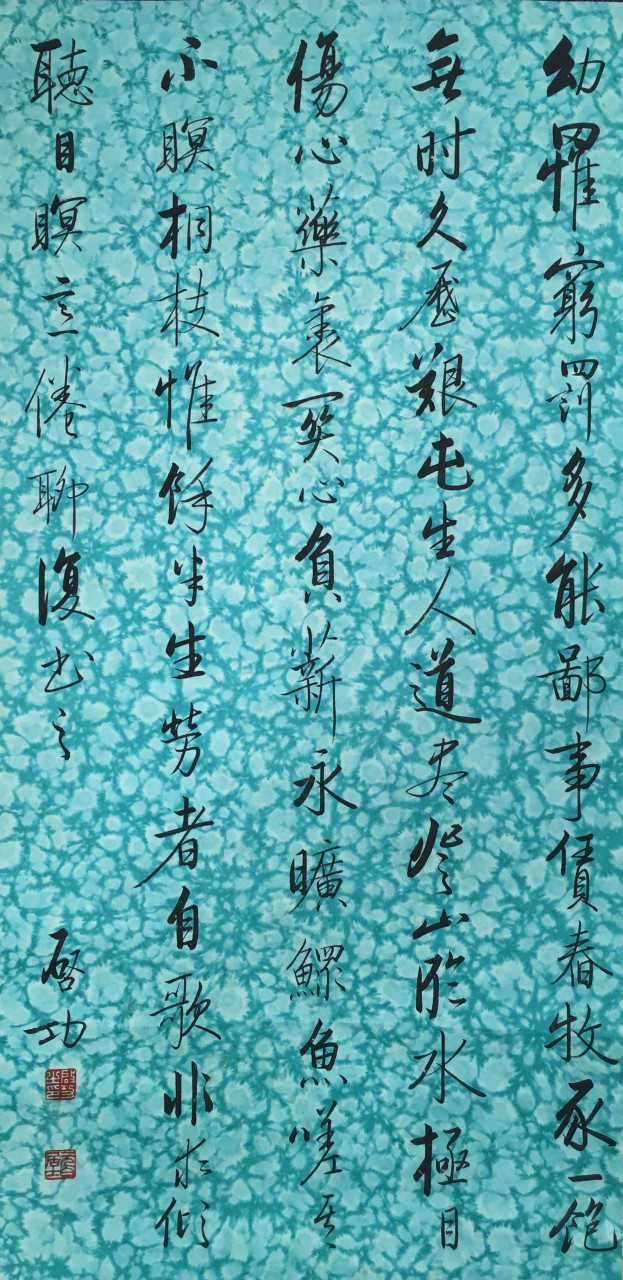 幼罹窮罰多能鄙事賃舂牧豕一飽
無时久歷艱屯生人道尽登山臨水極目
傷心藥裹関心負薪永曠鰥魚嗟其
不瞑桐枝惟餘半生勞者自歌非求倾
聽目瞑意倦聊復书之
啓功